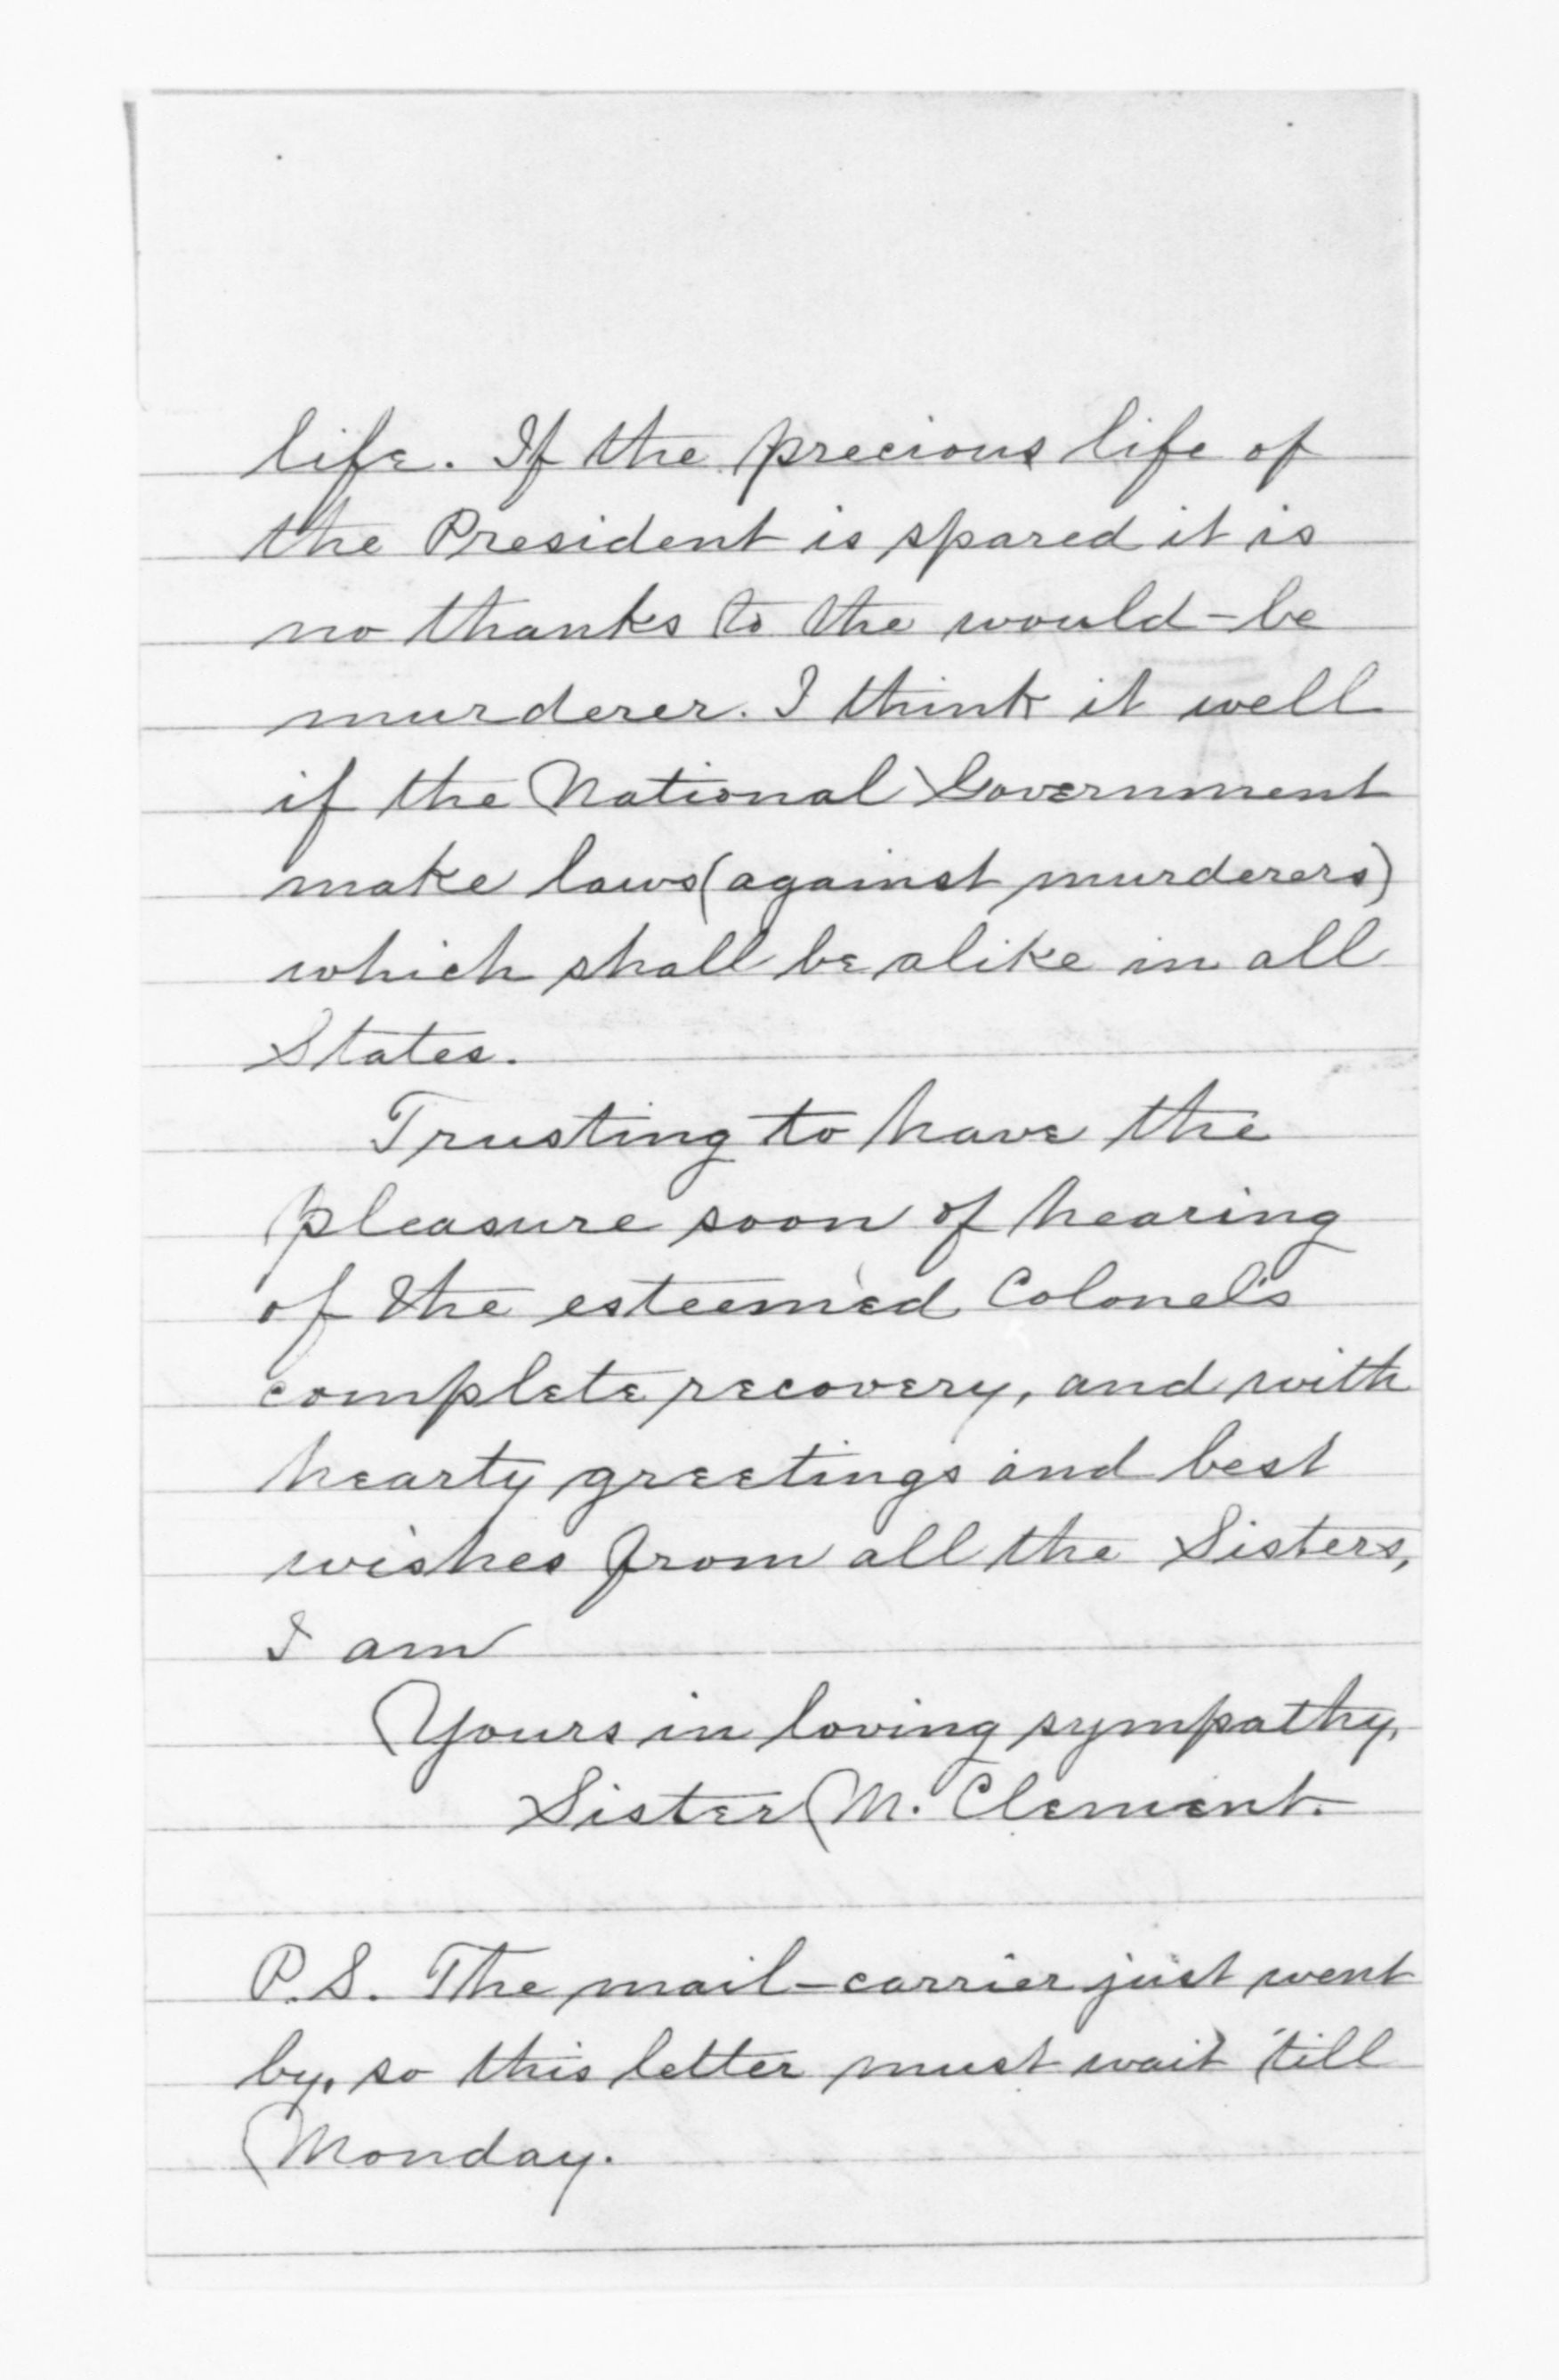 life. If the precious life of
the President is spared it is
no thanks to the would-be
murderer. I think it well
if the National Government
make laws (against murderers)
which shall be alike in all
States.
Trusting to have the
pleasure soon of hearing
of the esteemed Colonel's
complete recovery, and with
hearty greetings and best
wishes from all the Sisters,
I am
Yours in loving sympathy,
Sister M. Clement.
P.S. The mail-carrier just went
by, so this letter must wait 'till
Monday.